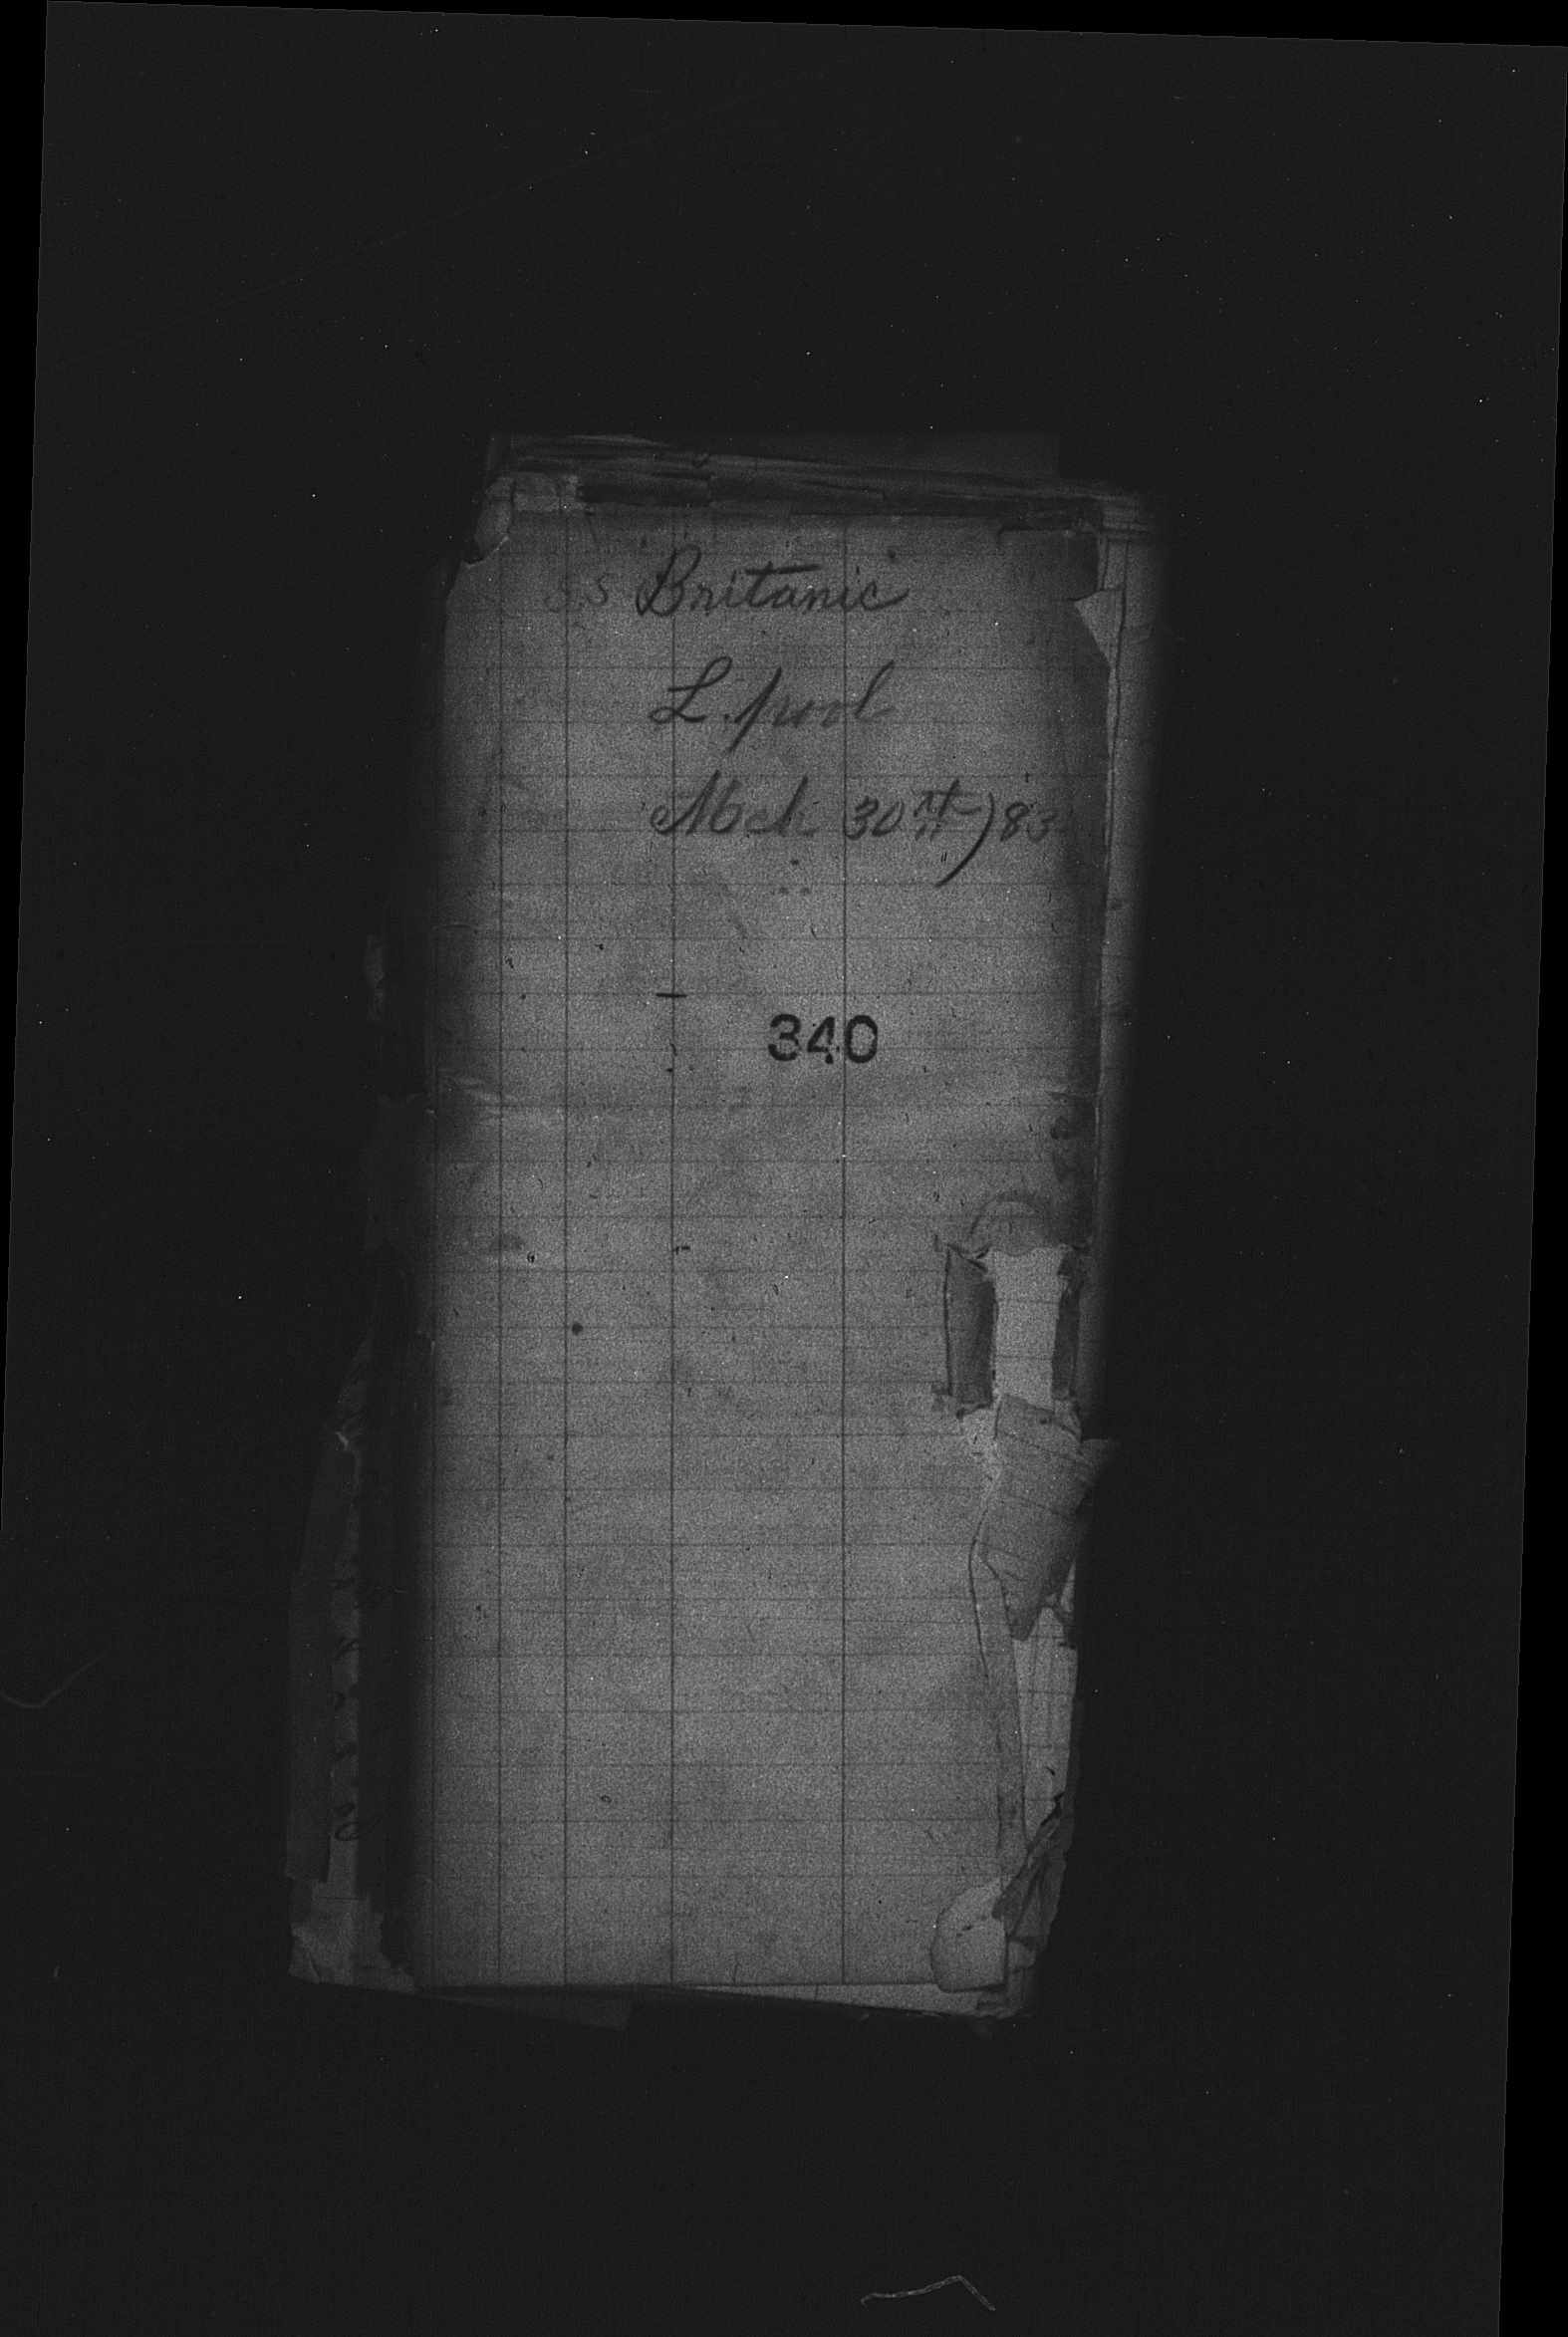 S.S Britanic
L.pool
Mch 30th/83
340